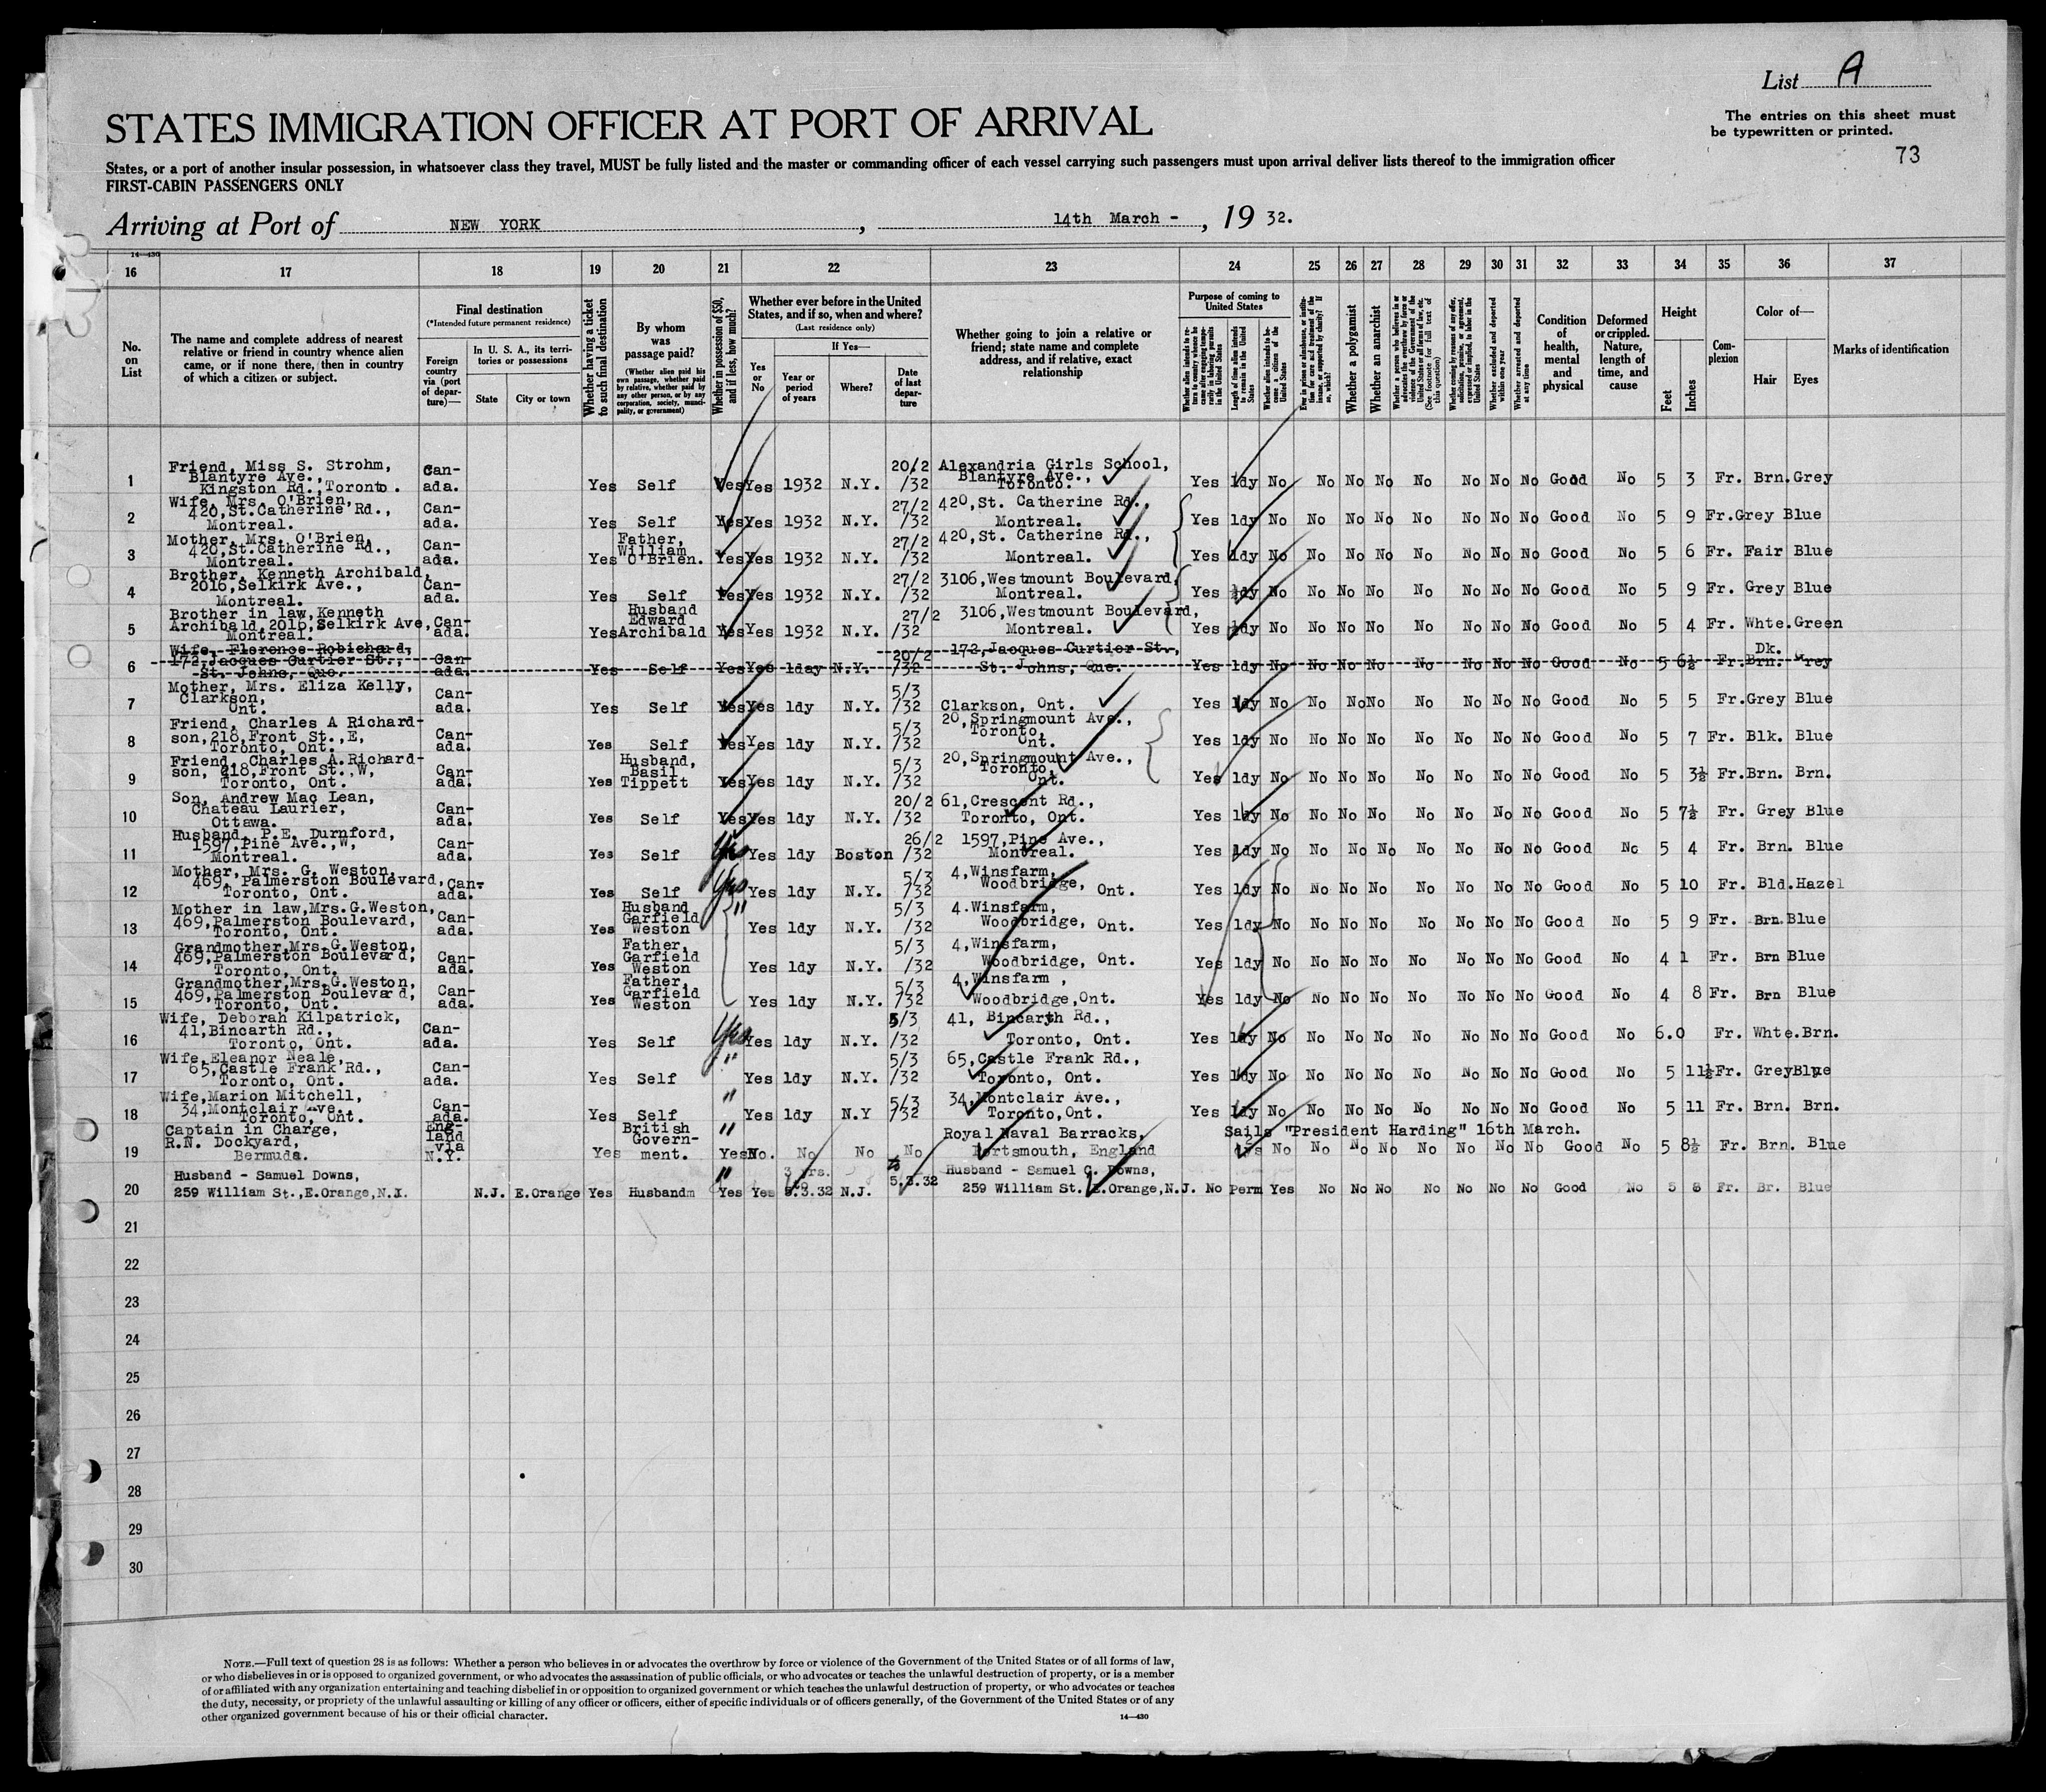 List A
STATES IMMIGRATION OFFICER AT PORT OF ARRIVAL
The entries on this sheet must
be typewritten or printed.
73
States, or a port of another insular possession, in whatsoever class they travel, MUST be fully listed and the master or commanding officer of each vessel carrying such passengers must upon arrival deliver lists thereof to the immigration officer
FIRST-CABIN PASSENGERS ONLY
Arriving at Port of NEW YORK, 14th March -, 19 32.
14—430
16 17 18 19 20 21 22 23 24 25 26 27 28 29 30 31 32 33 34 35 36 37
No. on List
The name and complete address of nearest relative or friend in country whence alien came, or if none there, then in country of which a citizen or subject.
Final destination
(*Intended future permanent residence)
Foreign country via (port of departure)—
In U. S. A., its territories or possessions
State
City or town
Whether having a ticket to such final destination
By whom was passage paid?
(Whether alien paid his own passage, whether paid by relative, whether paid by any other person, or by any corporation, society, municipality, or government)
Whether in possession of $50, and if less, how much?
Whether ever before in the United States, and if so, when and where?
(Last residence only)
Yes or No
If Yes—
Year or period of years
Where?
Date of last departure
Whether going to join a relative or friend; state name and complete address, and if relative, exact relationship
Purpose of coming to United States
Whether alien intends to return to country whence he came after engaging temporarily in laboring pursuits in the United States
Length of time alien intends to remain in the United States
Whether alien intends to become a citizen of the United States
Ever in prison or almshouse, or institution for care and treatment of the insane, or supported by charity? If so, which?
Whether a polygamist
Whether an anarchist
Whether a person who believes in or advocates the overthrow by force or violence of the Government of the United States or all forms of law, etc. (See footnote for full text of this question)
Whether coming by reasons of any offer, solicitation, promise, or agreement, expressed or implied, to labor in the United States
Whether excluded and deported within one year
Whether arrested and deported at any time
Condition of health, mental and physical
Deformed or crippled. Nature, length of time, and cause
Height
Feet
Inches
Complexion
Color of—
Hair
Eyes
Marks of identification
1 Friend, Miss S. Strohm, Blantyre Ave., Kingston Rd., Toronto. Can-ada. Yes Self Yes Yes 1932 N.Y. 20/2 /32 Alexandria Girls School, Blantyre Ave., Toronto. Yes 1dy No No No No No No No No Good No 5 3 Fr. Brn. Grey
2 Wife, Mrs. O'Brien, 420, St. Catherine Rd., Montreal. Can-ada. Yes Self Yes Yes 1932 N.Y. 27/2 /32 420, St. Catherine Rd., Montreal. Yes 1dy No No No No No No No No Good No 5 9 Fr. Grey Blue
3 Mother, Mrs. O'Brien, 420, St. Catherine Rd., Montreal. Can-ada. Yes Father, William O'Brien. Yes Yes 1932 N.Y. 27/2 /32 420, St. Catherine Rd., Montreal. Yes 1dy No No No No No No No No Good No 5 6 Fr. Fair Blue
4 Brother, Kenneth Archibald, 2016, Selkirk Ave., Montreal. Can-ada. Yes Self Yes Yes 1932 N.Y. 27/2 /32 3106, Westmount Boulevard, Montreal. Yes 1dy No No No No No No No No Good No 5 9 Fr. Grey Blue
5 Brother in law, Kenneth Archibald, 2016, Selkirk Ave, Montreal. Can-ada. Yes Husband Edward Archibald Yes Yes 1932 N.Y. 27/2 /32 3106, Westmount Boulevard, Montreal. Yes 1dy No No No No No No No No Good No 5 4 Fr. Whte. Green
6 Wife, Florence Robichard, 172, Jacques Curtier St., St. Johns, Que. Can-ada. Yes Self Yes Yes 1day N.Y. 20/2 /32 172, Jacques Curtier St., St. Johns, Que. Yes 1dy No No No No No No No No Good No 5 6½ Fr. Dk. Brn. Grey
7 Mother, Mrs. Eliza Kelly, Clarkson, Ont. Can-ada. Yes Self Yes Yes 1dy N.Y. 5/3 /32 Clarkson, Ont. Yes 1dy No No No No No No No No Good No 5 5 Fr. Grey Blue
8 Friend, Charles A Richard-son, 218, Front St., E, Toronto, Ont. Can-ada. Yes Self Yes Yes 1dy N.Y. 5/3 /32 20, Springmount Ave., Toronto, Ont. Yes 1dy No No No No No No No No Good No 5 7 Fr. Blk. Blue
9 Friend, Charles A. Richard-son, 218, Front St., W, Toronto, Ont. Can-ada. Yes Husband, Basil Tippett Yes Yes 1dy N.Y. 5/3 /32 20, Springmount Ave., Toronto, Ont. Yes 1dy No No No No No No No No Good No 5 3½ Fr. Brn. Brn.
10 Son, Andrew Mac Lean, Chateau Laurier, Ottawa. Can-ada. Yes Self Yes Yes 1dy N.Y. 20/2 /32 61, Crescent Rd., Toronto, Ont. Yes 1dy No No No No No No No No Good No 5 7½ Fr. Grey Blue
11 Husband, P.E. Durnford, 1597, Pine Ave., W, Montreal. Can-ada. Yes Self Yes Yes 1dy Boston 26/2 /32 1597, Pine Ave., Montreal. Yes 1dy No No No No No No No No Good No 5 4 Fr. Brn. Blue
12 Mother, Mrs. G. Weston, 469, Palmerston Boulevard, Toronto, Ont. Can-ada. Yes Self Yes Yes 1dy N.Y. 5/3 /32 4, Winsfarm, Woodbridge, Ont. Yes 1dy No No No No No No No No Good No 5 10 Fr. Bld. Hazel
13 Mother in law, Mrs. G. Weston, 469, Palmerston Boulevard, Toronto, Ont. Can-ada. Yes Husband Garfield Weston " Yes 1dy N.Y. 5/3 /32 4. Winsfarm, Woodbridge, Ont. Yes 1dy No No No No No No No No Good No 5 9 Fr. Brn. Blue
14 Grandmother, Mrs. G. Weston, 469, Palmerston Boulevard, Toronto, Ont. Can-ada. Yes Father, Garfield Weston Yes 1dy N.Y. 5/3 /32 4, Winsfarm, Woodbridge, Ont. Yes 1dy No No No No No No No No Good No 4 1 Fr. Brn Blue
15 Grandmother, Mrs. G. Weston, 469, Palmerston Boulevard, Toronto, Ont. Can-ada. Yes Father, Garfield Weston Yes 1dy N.Y. 5/3 /32 4, Winsfarm, Woodbridge, Ont. Yes 1dy No No No No No No No No Good No 4 8 Fr. Brn Blue
16 Wife, Deborah Kilpatrick, 41, Bincarth Rd., Toronto, Ont. Can-ada. Yes Self Yes Yes 1dy N.Y. 5/3 /32 41, Bincarth Rd., Toronto, Ont. Yes 1dy No No No No No No No No Good No 6.0 Fr. Whte. Brn.
17 Wife, Eleanor Neale, 65, Castle Frank Rd., Toronto, Ont. Can-ada. Yes Self " Yes 1dy N.Y. 5/3 /32 65, Castle Frank Rd., Toronto, Ont. Yes 1dy No No No No No No No No Good No 5 11½ Fr. Grey Blue
18 Wife, Marion Mitchell, 34, Montclair Ave. Toronto, Ont. Can-ada. Yes Self " Yes 1dy N.Y 5/3 /32 34, Montclair Ave., Toronto, Ont. Yes 1dy No No No No No No No No Good No 5 11 Fr. Brn. Brn.
19 Captain in Charge, R.N. Dockyard, Bermuda. Eng-land via N.Y. Yes British Govern-ment. " Yes No. No No No Royal Naval Barracks, Portsmouth, England Sails "President Harding" 16th March. dys No No No No No No No No Good No 5 8½ Fr. Brn. Blue
20 Husband - Samuel Downs, 259 William St., E.Orange, N.J. N.J. E.Orange Yes Husbandm " Yes Yes 3 yrs. to 5.3.32 N.J. 5.3.32 Husband - Samuel C. Downs, 259 William St. E.Orange, N.J. No Perm Yes No No No No No No No Good No 5 8 Fr. Br. Blue
21
22
23
24
25
26
27
28
29
30
NOTE.—Full text of question 28 is as follows: Whether a person who believes in or advocates the overthrow by force or violence of the Government of the United States or of all forms of law,
or who disbelieves in or is opposed to organized government, or who advocates the assassination of public officials, or who advocates or teaches the unlawful destruction of property, or is a member
of or affiliated with any organization entertaining and teaching disbelief in or opposition to organized government or which teaches the unlawful destruction of property, or who advocates or teaches
the duty, necessity, or propriety of the unlawful assaulting or killing of any officer or officers, either of specific individuals or of officers generally, of the Government of the United States or of any
other organized government because of his or their official character.
14—430